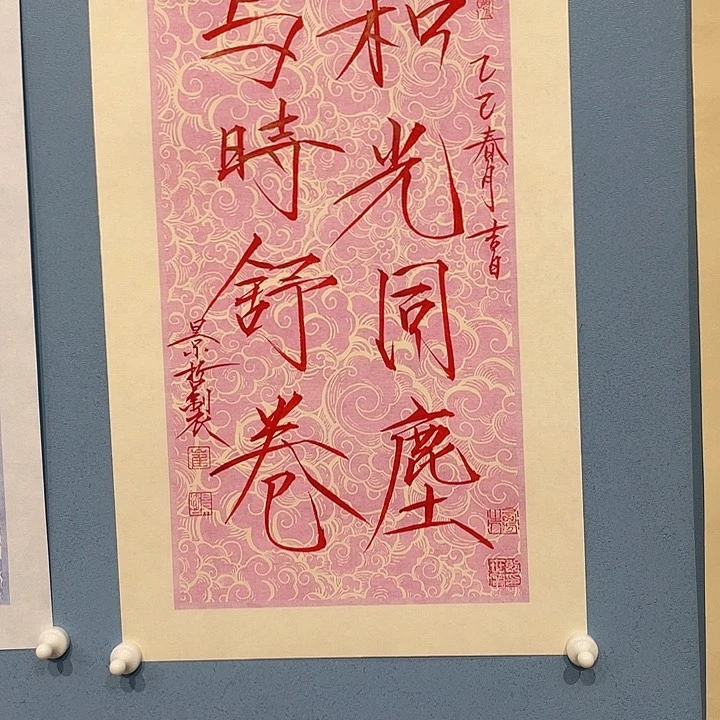 乙巳春月吉日
和光同塵
与時舒卷
景製